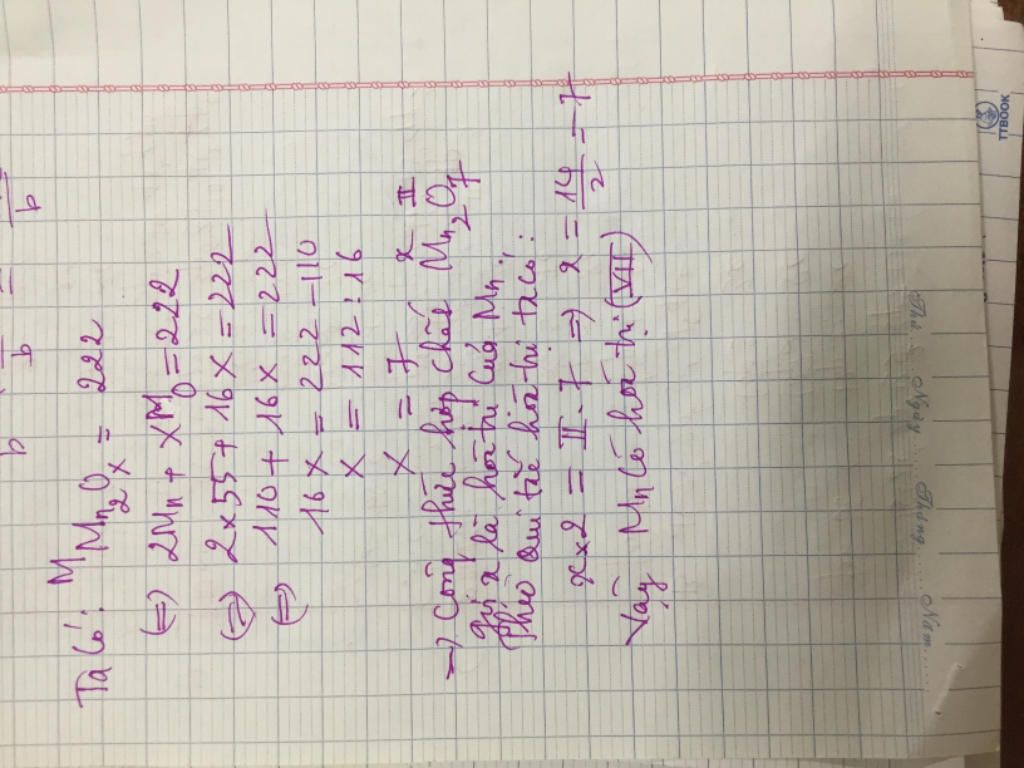 b b b
Ta có: M Mn2Ox = 222
(=) 2Mn + XMO = 222
(=) 2x55 + 16X = 222
(=) 110 + 16X = 222
16X = 222 - 110
X = 112:16
X = 7
x II
-> Công thức hợp chất Mn2O7
gọi x là hóa trị của Mn.
Theo qui tắc hóa trị ta có:
x x 2 = II . 7 => x = 14/2 = 7
Vậy Mn có hóa trị (VII)
Thứ..... Ngày..... Tháng..... Năm.....
TTBOOK